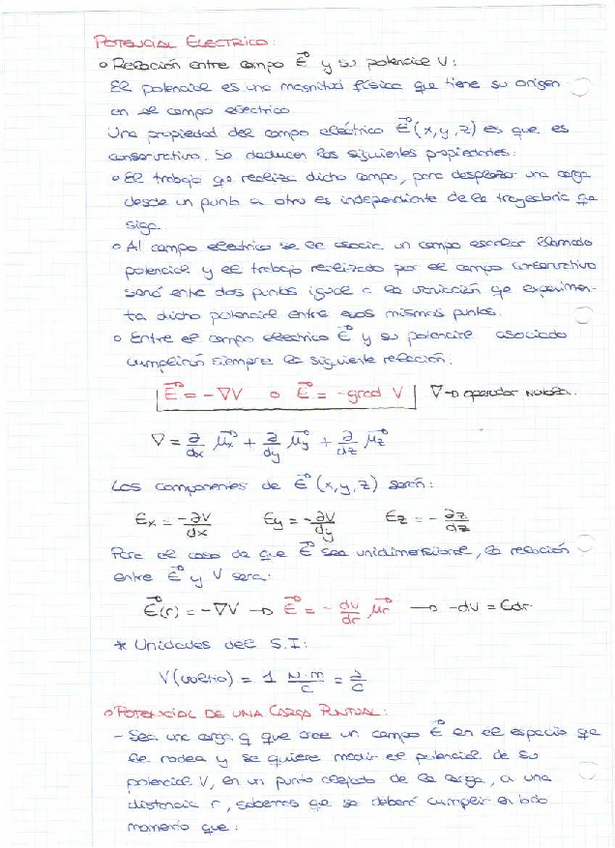 POTENCIAL ELECTRICO:
o Relación entre campo E⃗ y su potencial V:
El potencial es una magnitud física que tiene su origen
en el campo electrico.
Una propiedad del campo eléctrico E⃗(x,y,z) es que es
conservativo. Se deducen las siguientes propiedades:
o El trabajo qe realiza dicho campo, para desplazar una carga
desde un punto a otro es independiente de la trayectoria qe
siga.
o Al campo electrico se le asocia un campo escalar llamado
potencial y el trabajo realizado por el campo conservativo
será entre dos puntos igual a la variación qe experimen-
ta dicho potencial entre esos mismos puntos.
o Entre el campo electrico E⃗ y su potencial asociado
cumplirán siempre la siguiente relación:
E⃗ = -∇V o E⃗ = -grad V ∇→ operador Nabla.
∇ = ∂/dx μ⃗x + ∂/dy μ⃗y + ∂/dz μ⃗z
Las componentes de E⃗(x,y,z) serán:
Ex = -∂V/dx Ey = -∂V/dy Ez = -∂z/dz
Para el caso de que E⃗ sea unidimensional, la relación
entre E⃗ y V será:
E⃗(r) = -∇V → E⃗ = -dv/dr μ⃗r → -dV = Edr
* Unidades del S.I:
V(voltio) = 1 N·m/C = J/C
o POTENCIAL DE UNA CARGA PUNTUAL:
- Sea una carga q que cree un campo E⃗ en el espacio qe
le rodea y se quiere medir el potencial de su
potencial V, en un punto alejado de la carga, a una
distancia r, sabemos qe se deberá cumplir en todo
momento que: